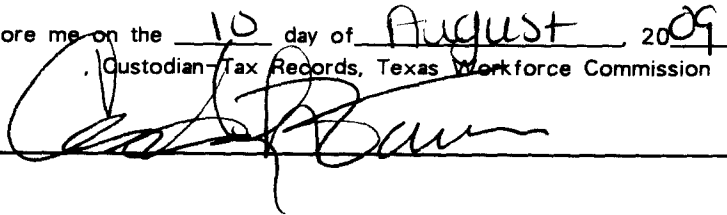 ore me on the 10 day of August, 2009
, Custodian-Tax Records, Texas Workforce Commission